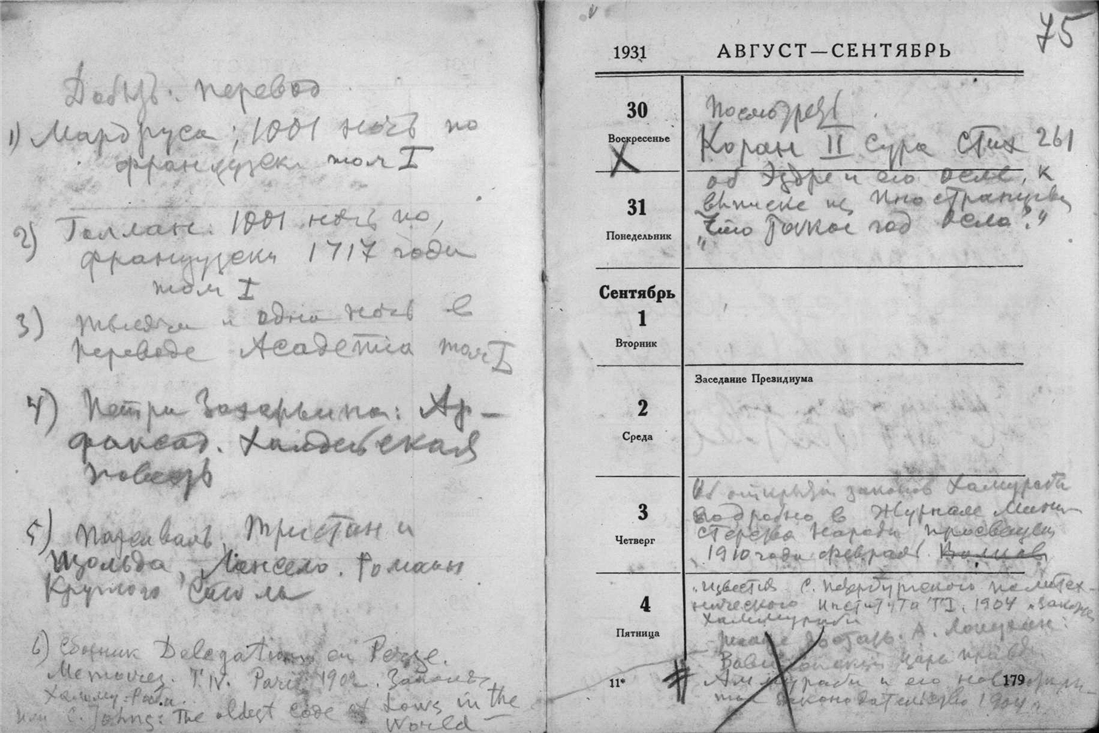 Добыть. перевод
1) Мардруса; 1001 ночь по
французск том I
2) Галлан. 1001 ночь по
французски 1717 года
том I
3) тысяча и одна ночь в
переводе Academia том I
4) Петри Захарьина: Ар-
факсад. Халдейская
повесть
5) Парсиваль. Тристан и
Изольда Лансело. Романы
Круглого Стола
6) Сборник Delegation en Perse.
Memoires. T. IV. Paris 1902. Законы
Хамму-Раби.
или C. Johns: The oldest code of Laws in the
World
75
1931 АВГУСТ—СЕНТЯБРЬ
30
Воскресенье
Посмотреть
Коран II Сура Стих 261
об Эздре и его осле, к
31
Понедельник
выписке из Иностранцева
"Что такое год осла?"
Сентябрь
1
Вторник
Заседание Президиума
2
Среда
3
Четверг
Об открытии законов Хаммураби
подробно в Журнале Мини-
стерства Народн просвещен
1910 года февраль
4
Пятница
"Известия С. петербургского политех-
нического Института T I. 1904 "Законы
Хаммураби
также А. Лопухин:
Вавилонский царь правды
Аммураби и его
законодательство 1904 г.
11*
179